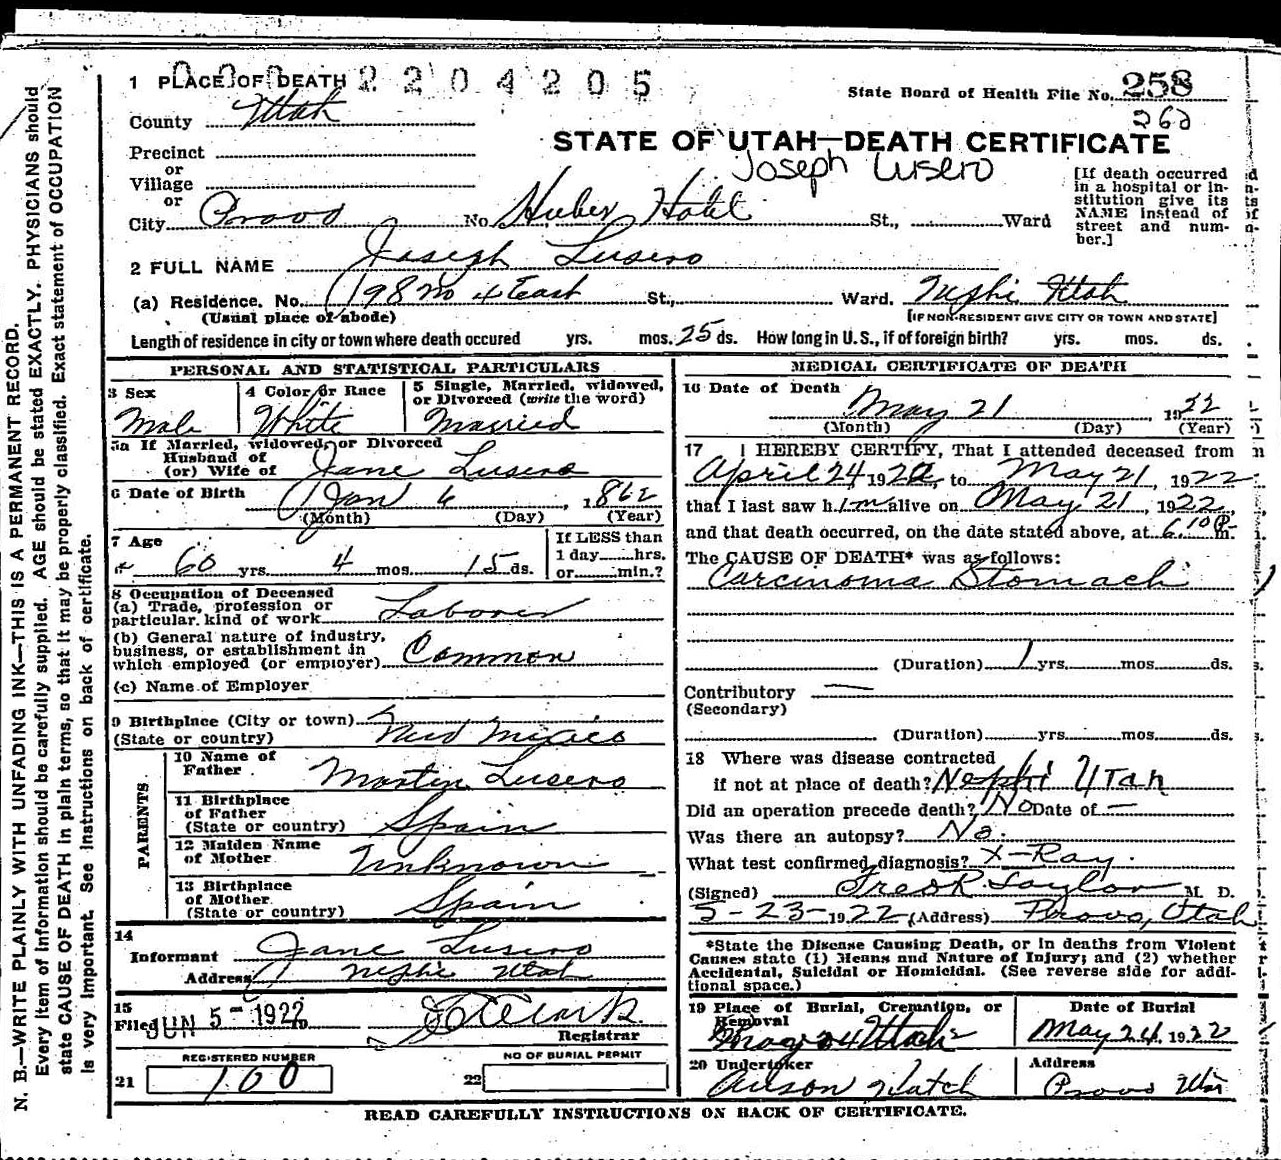 1 PLACE OF DEATH 0002204205
State Board of Health File No. 258
262
County Utah
STATE OF UTAH—DEATH CERTIFICATE
Joseph Lusero
Precinct
or
Village
or
City Provo No. Huber Hotel St., Ward
[If death occurred in a hospital or institution give its NAME instead of street and number.]
2 FULL NAME Joseph Lusero
(a) Residence. No. 198 no 4 East St., Ward. Nephi Utah
(Usual place of abode) [IF NON-RESIDENT GIVE CITY OR TOWN AND STATE]
Length of residence in city or town where death occured yrs. mos. 25 ds. How long in U.S., if of foreign birth? yrs. mos. ds.
PERSONAL AND STATISTICAL PARTICULARS
3 Sex
Male
4 Color or Race
White
5 Single, Married, widowed, or Divorced (write the word)
Married
5a If Married, widowed, or Divorced
Husband of
(or) Wife of Jane Lusero
6 Date of Birth Jan 6, 1862
(Month) (Day) (Year)
7 Age
60 yrs. 4 mos. 15 ds.
If LESS than
1 day hrs.
or min.?
8 Occupation of Deceased
(a) Trade, profession or
particular kind of work Laborer
(b) General nature of industry,
business, or establishment in
which employed (or employer) Common
(c) Name of Employer
9 Birthplace (City or town)
(State or country) New Mexico
PARENTS
10 Name of
Father Martin Lusero
11 Birthplace
of Father
(State or country) Spain
12 Maiden Name
of Mother Unknown
13 Birthplace
of Mother
(State or country) Spain
14
Informant Jane Lusero
Address Nephi Utah
15
Filed JUN 5-1922
Registrar
REGISTERED NUMBER
21 100
NO OF BURIAL PERMIT
22
MEDICAL CERTIFICATE OF DEATH
16 Date of Death
May 21 1922
(Month) (Day) (Year)
17 I HEREBY CERTIFY, That I attended deceased from
April 24 1922, to May 21, 1922
that I last saw him alive on May 21, 1922,
and that death occurred, on the date stated above, at 6.10 P. m.
The CAUSE OF DEATH* was as follows:
Carcinoma Stomach
(Duration) 1 yrs. mos. ds.
Contributory —
(Secondary)
(Duration) yrs. mos. ds.
18 Where was disease contracted
if not at place of death? Nephi Utah
Did an operation precede death? No Date of —
Was there an autopsy? No.
What test confirmed diagnosis? X-Ray.
(Signed) Fred R. Taylor M. D.
5-23-1922 (Address) Provo, Utah
*State the Disease Causing Death, or in deaths from Violent
Causes state (1) Means and Nature of Injury; and (2) whether
Accidental, Suicidal or Homicidal. (See reverse side for addi-
tional space.)
19 Place of Burial, Cremation, or
Removal
Utah
Date of Burial
May 24 1922
20 Undertaker
Hatch
Address
Provo
READ CAREFULLY INSTRUCTIONS ON BACK OF CERTIFICATE.
N. B.—WRITE PLAINLY WITH UNFADING INK—THIS IS A PERMANENT RECORD.
Every item of information should be carefully supplied. AGE should be stated EXACTLY. PHYSICIANS should
state CAUSE OF DEATH in plain terms, so that it may be properly classified. Exact statement of OCCUPATION
is very important. See instructions on back of certificate.